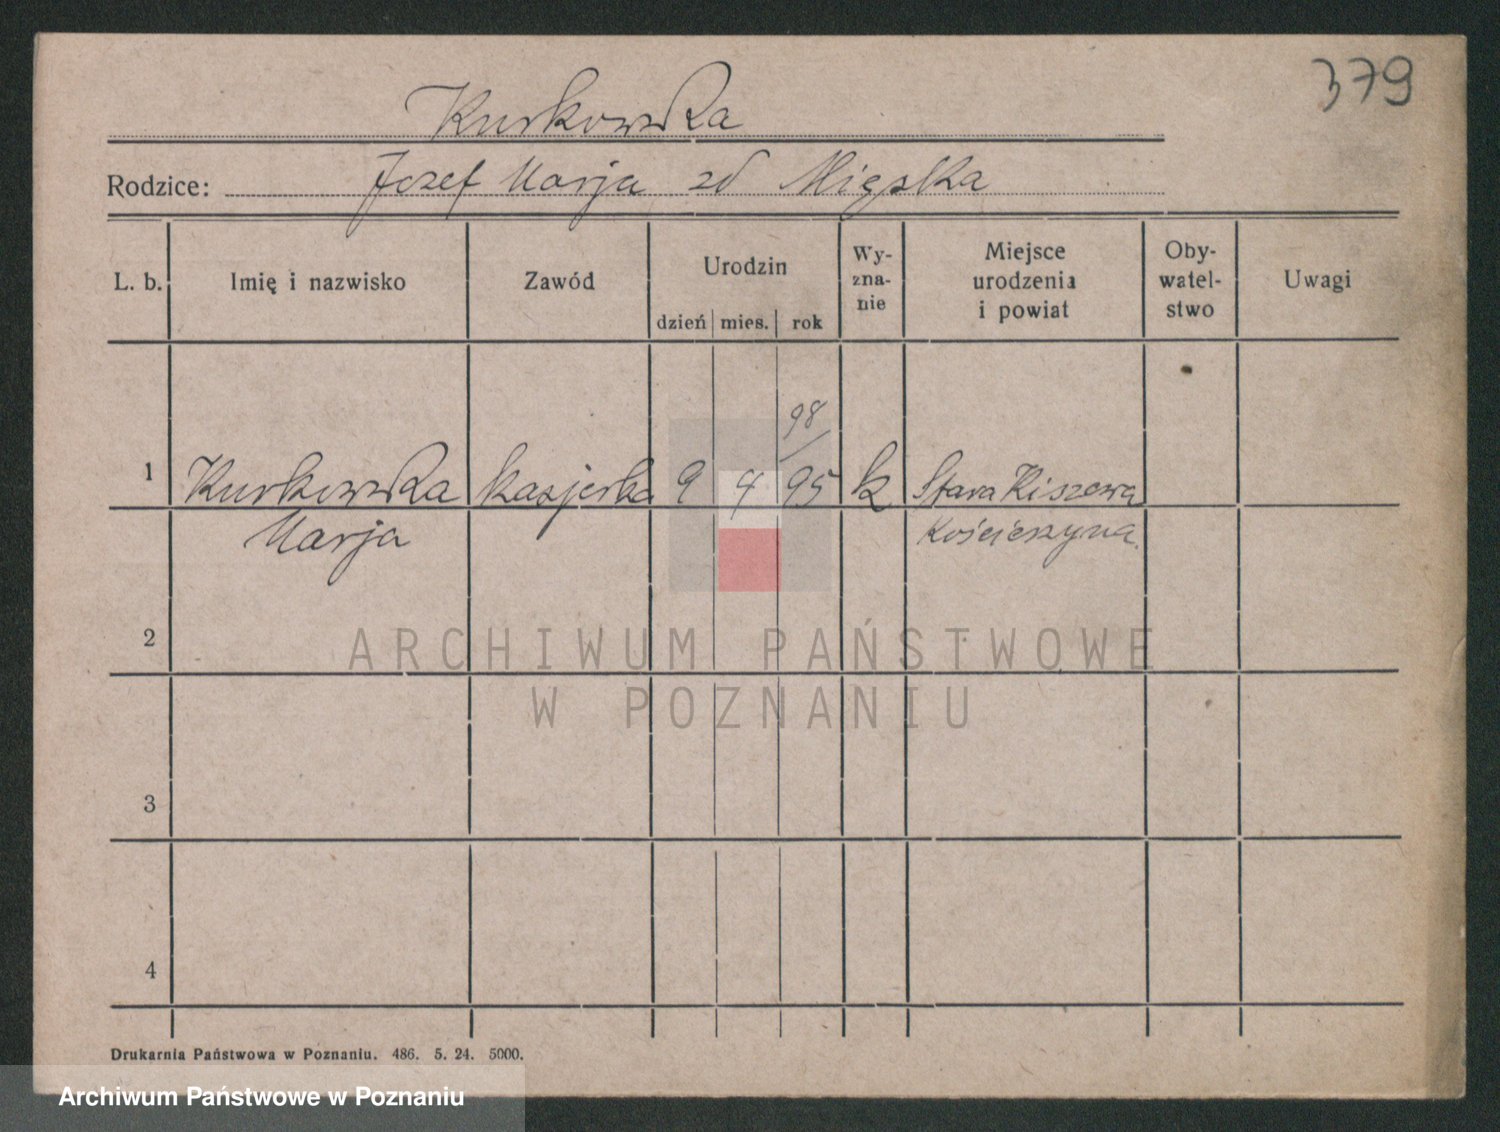 379
Kurkowska
Rodzice: Jozef Marja zd Mięska
L. b.
Imię i nazwisko
Zawód
Urodzin
dzień mies. rok
Wy-
zna-
nie
Miejsce
urodzenia
i powiat
Oby-
watel-
stwo
Uwagi
98
1 Kurkowska kasjerka 9 4 95 k Stara Kiszewa
Marja Kościerzyna
2
ARCHIWUM PAŃSTWOWE
W POZNANIU
3
4
Drukarnia Państwowa w Poznaniu. 486. 5. 24. 5000.
Archiwum Państwowe w Poznaniu